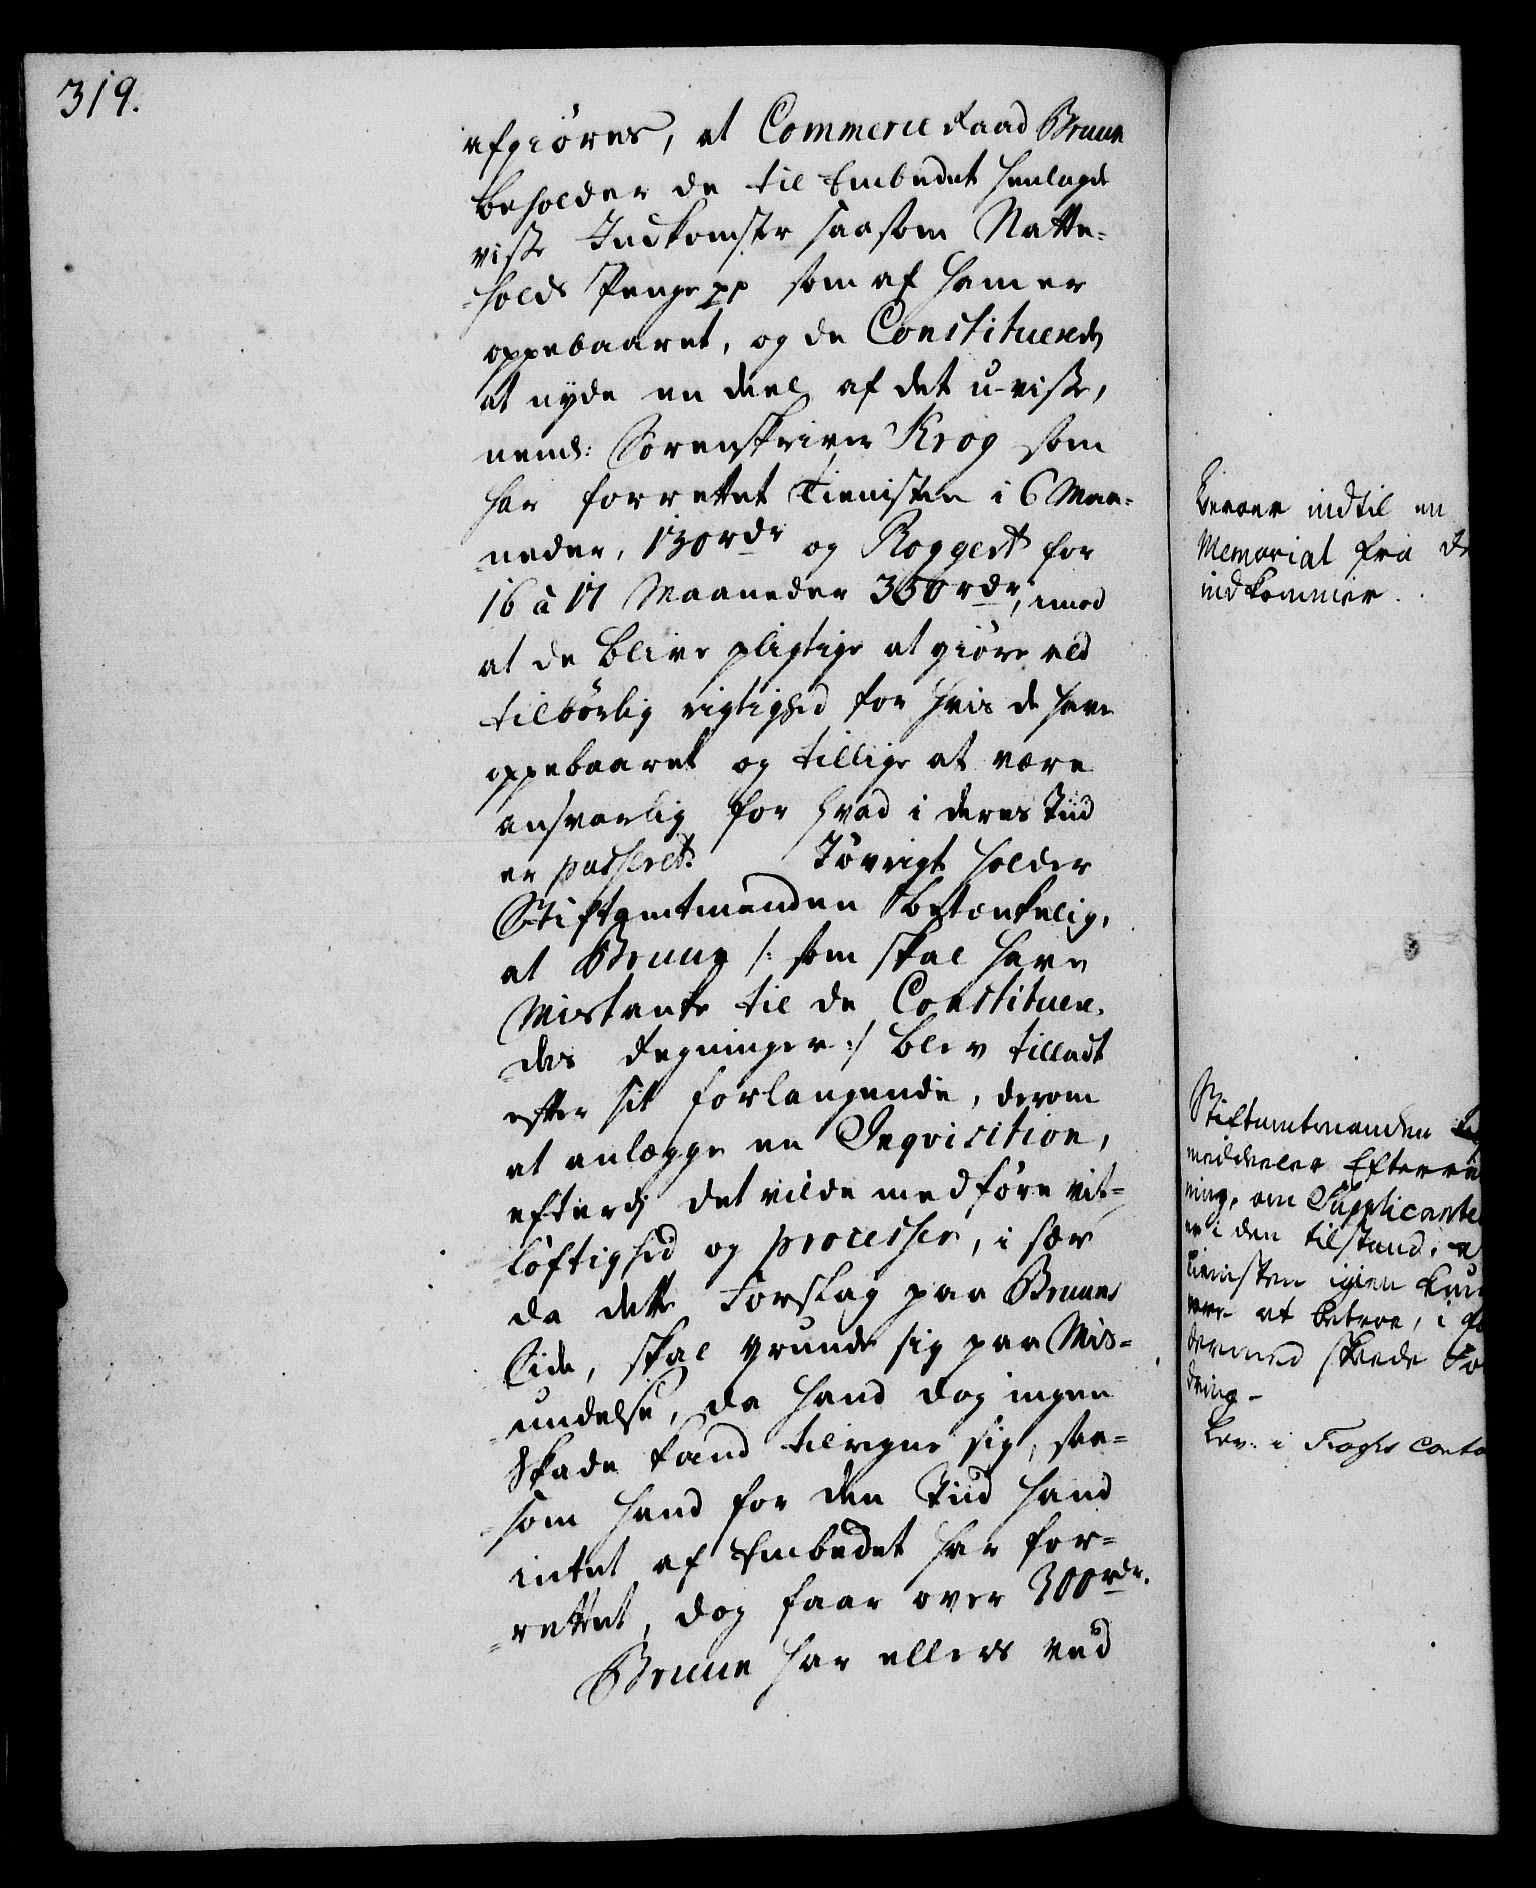 319.
afgiöres, at Commerce Raad Bruun
beholder de til Embedet henlagde
visse Indkomster saasom Natte-
-holds Penge pp som af ham er
oppebaaret, og de Constituerede
at nyde en deel af det u-visse,
neml: Sorenskriver Krog som
har forrettet Tienisten i 6 Maa-
-neder, 130 rdr og Roggert for
16 à 17 Maaneder 350 rdr, imod
at de blive pligtige at giöre all
tilbörlig rigtighed for hvis de have
oppebaaret og tillige at være
ansvarlig for hvad i deres Tiid
er passeret. Iövrigt holder
Stiftamtmanden betænkelig,
at Bruun /: som skal have
Mistanke til de Constituere-
-des Regninger :/ blev tilladt
efter sit forlangende, derom
at anlægge en Inqvisition,
efterdj det vilde medföre vit-
löftighed og processer, i sær
da dette Forslag paa Bruuns
Side, skal grunde sig paa Mis-
-undelse, da hand dog ingen
skade kand tilregne sig, saa-
-som hand for den Tiid hand
intet af Embedet har for-
-rettet, dog faar over 300 rdr.
Bruun har ellers ved
Beroer indtil en
Memorial fra
indkommer.
Stiftamtmanden
meddeeler Efterret
ning, om Supplicante
er i den tilstand, a
Tienisten igien kun
være at betroe, i
dermed skeede Fo
dring-
Lev: i Foghs Conto